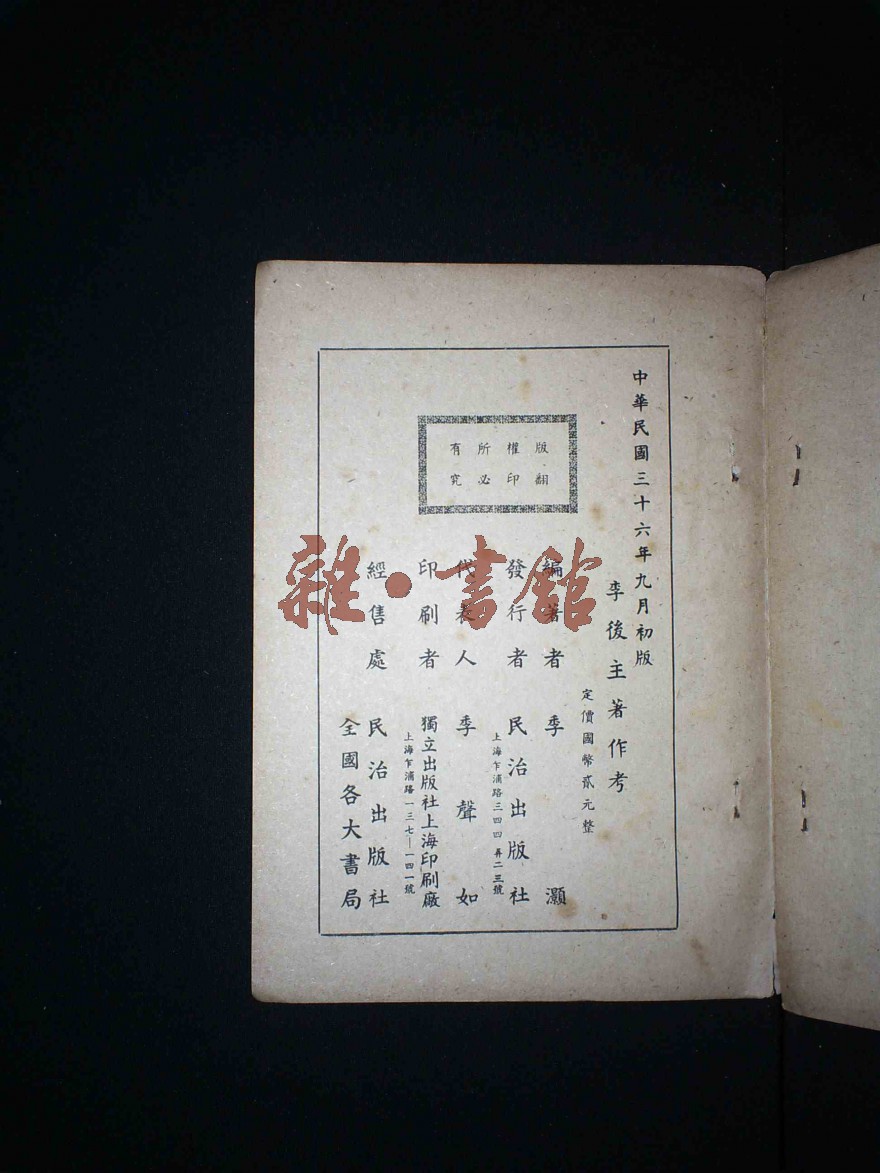 中華民國三十六年九月初版
李後主著作考
定價國幣貳元整
版權所有
翻印必究
編著者 季灝
發行者 民治出版社
上海乍浦路三四四弄二三號
代表人 季聲如
印刷者 獨立出版社上海印刷廠
上海乍浦路一三七—一四一號
經售處 民治出版社
全國各大書局
雜·書館